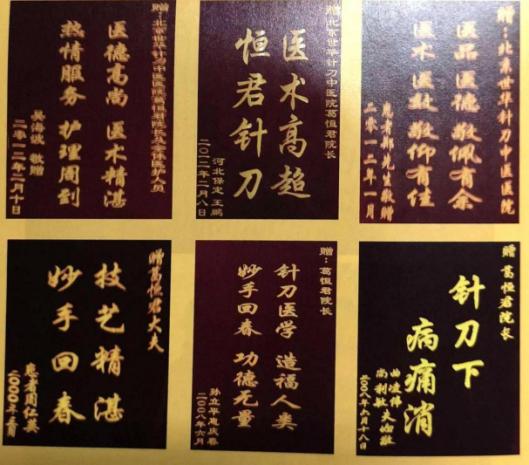 赠:北京世华针刀中医医院葛恒君院长及全体医护人员
医德高尚 医术精湛
热情服务 护理周到
吴海波 敬赠
二零一二年二月十日
赠北京世华针刀中医院葛恒君院长
医术高超
恒君针刀
河北保定 王鹏
二〇一二年二月八日
赠:北京世华针刀中医医院
医品医德 敬佩有余
医术医数 敬仰有佳
患者郑先生敬赠
二零一二年一月
赠葛恒君大夫
技艺精湛
妙手回春
患者周仁英
赠:葛恒君院长
针刀医学 造福人类
妙手回春 功德无量
二〇〇八年六月
赠 葛恒君院长
针刀下
病痛消
二〇〇八年六月十八日